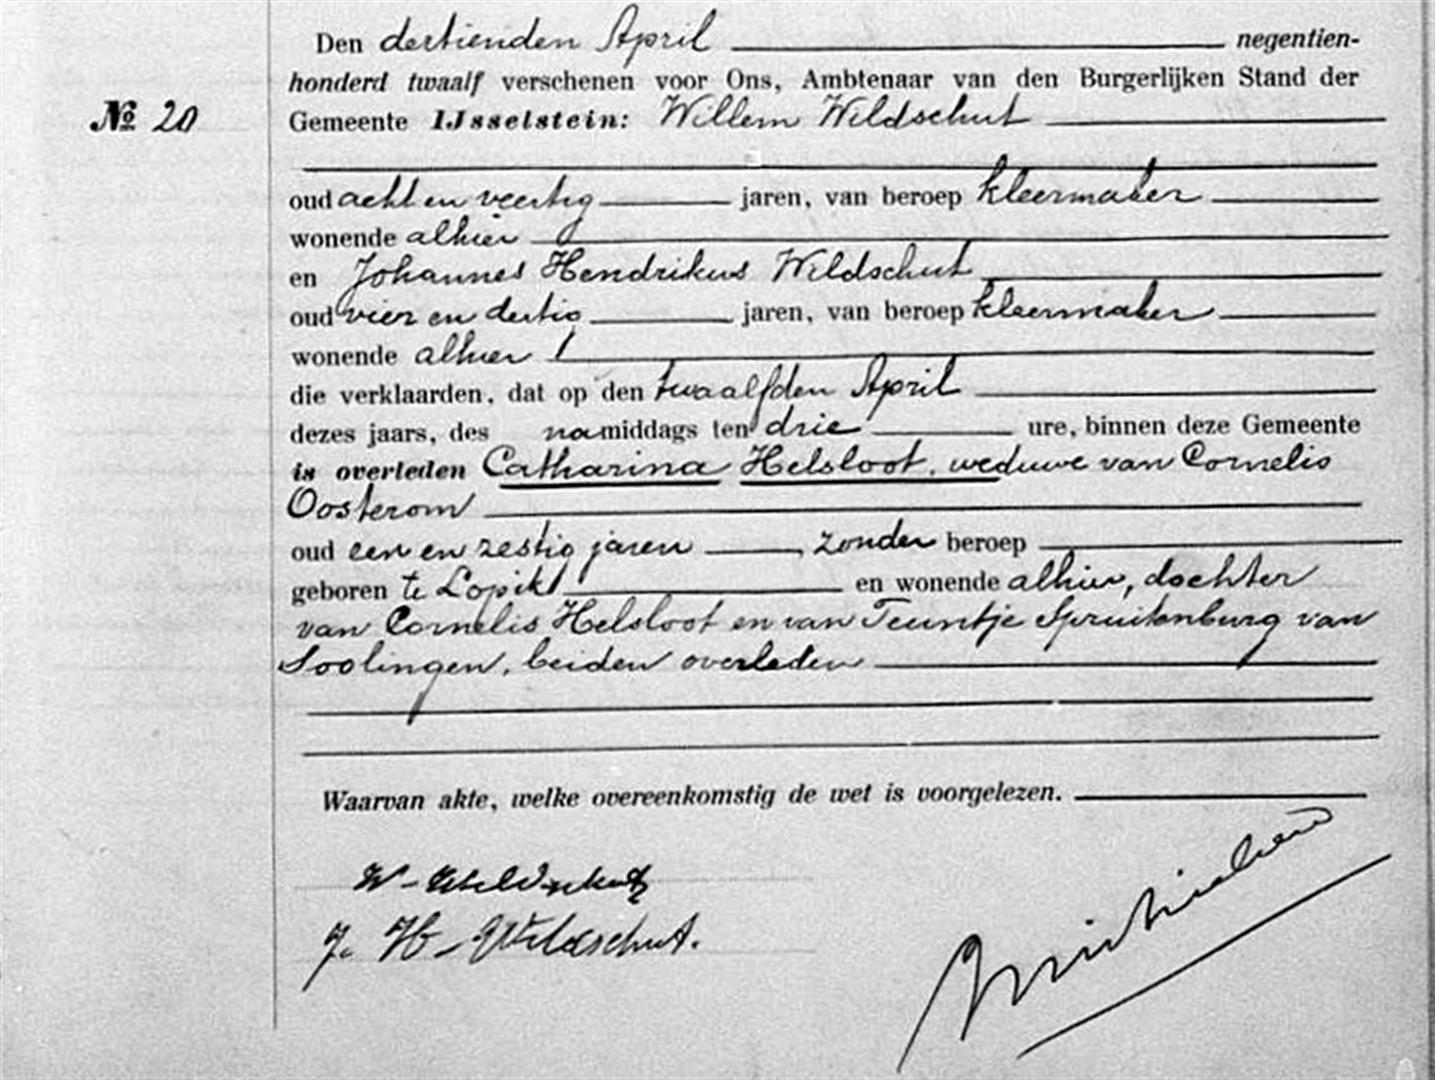 Den dertienden April negentien-
honderd twaalf verschenen voor Ons, Ambtenaar van den Burgerlijken Stand der
№ 20
Gemeente IJsselstein: Willem Wildschut
oud acht en veertig jaren, van beroep kleermaker
wonende alhier
en Johannes Hendrikus Wildschut
oud vier en dertig jaren, van beroep kleermaker
wonende alhier
die verklaarden, dat op den twaalfden April
dezes jaars, des namiddags ten drie ure, binnen deze Gemeente
is overleden Catharina Helsloot, weduwe van Cornelis
Oosterom
oud een en zestig jaren zonder beroep
geboren te Lopik en wonende alhier, dochter
van Cornelis Helsloot en van Teuntje Spruitenburg van
Soolingen, beiden overleden
Waarvan akte, welke overeenkomstig de wet is voorgelezen.
W. Wildschut
J. H. Wildschut.